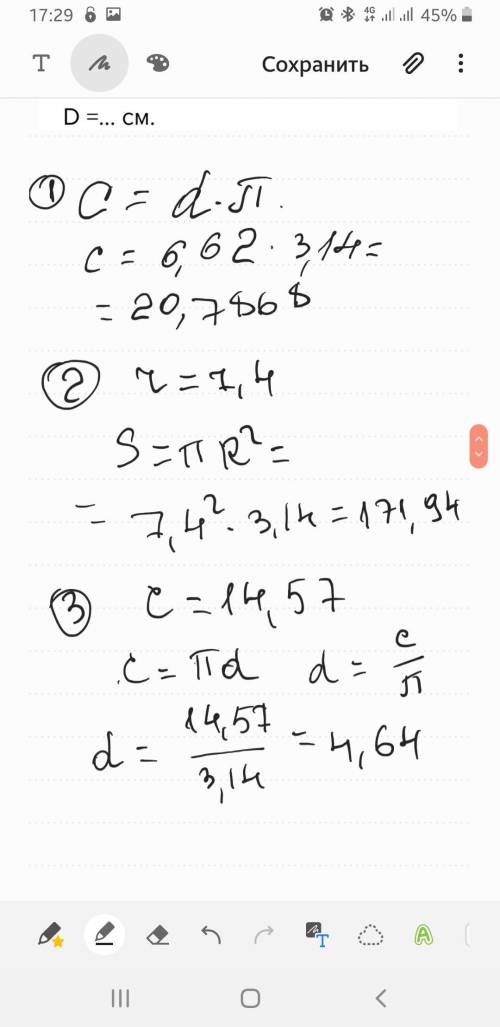 17:29 4G 45%
T Сохранить
D =... см.
① C = d·π.
c = 6,62 · 3,14 =
= 20,7868
② r = 7,4
S = π R² =
= 7,4² · 3,14 = 171,94
③ C = 14,57
C = πd d = c/π
d = 14,57/3,14 = 4,64
T A